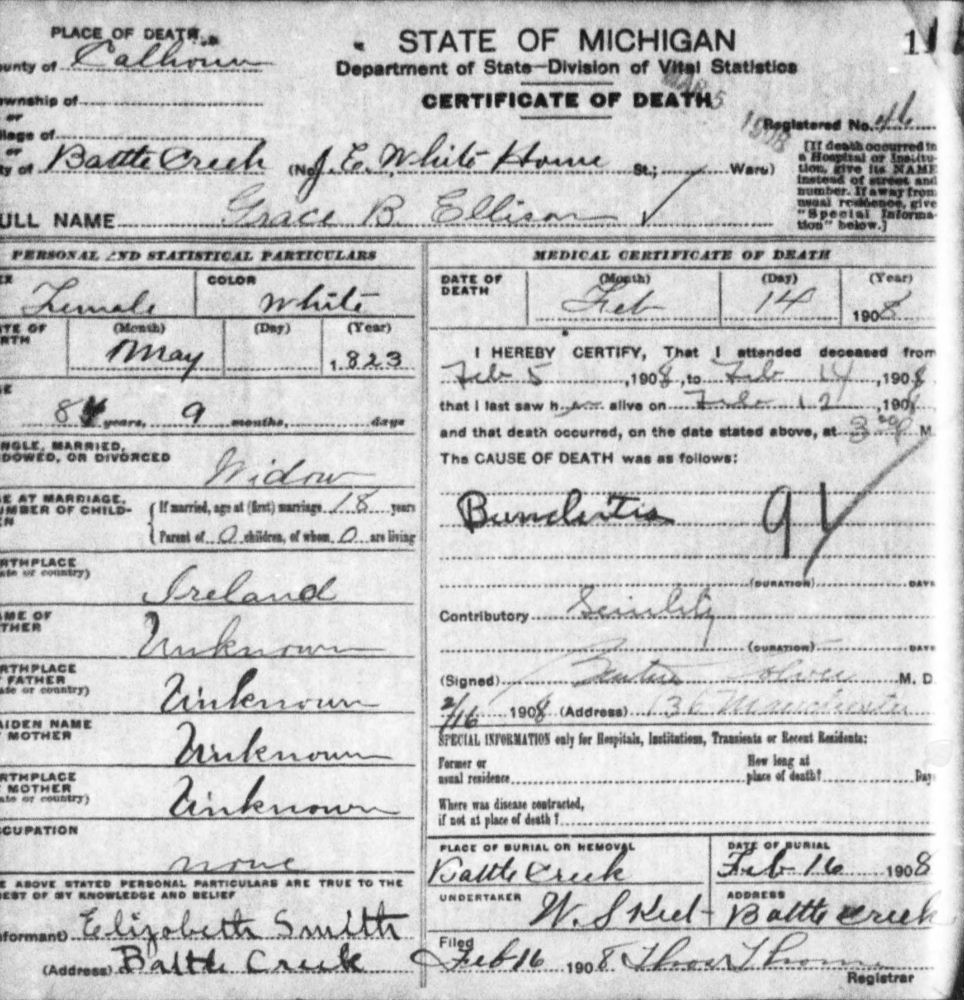 PLACE OF DEATH
STATE OF MICHIGAN
ounty of Calhoun
Department of State—Division of Vital Statistics
ownship of
CERTIFICATE OF DEATH
MAR 5 1908
or
llage of
Registered No. 46
or
ty of Battle Creek (No. J. E. White Home St.; Ward)
[If death occurred in
a Hospital or Institu-
tion, give its NAME
instead of street and
number. If away from
usual residence, give
"Special Informa-
tion" below.]
ULL NAME Grace B. Ellison
PERSONAL AND STATISTICAL PARTICULARS
EX Female COLOR White
TE OF
RTH
(Month) (Day) (Year)
May 1823
GE
84 years, 9 months, days
NGLE, MARRIED,
DOWED, OR DIVORCED
Widow
E AT MARRIAGE,
UMBER OF CHILD-
EN
If married, age at (first) marriage 18 years
Parent of 0 children, of whom 0 are living
RTHPLACE
ate or country)
Ireland
AME OF
THER
Unknown
RTHPLACE
F FATHER
ate or country)
Unknown
AIDEN NAME
F MOTHER
Unknown
RTHPLACE
F MOTHER
ate or country)
Unknown
CCUPATION
none
E ABOVE STATED PERSONAL PARTICULARS ARE TRUE TO THE
EST OF MY KNOWLEDGE AND BELIEF
nformant) Elizabeth Smith
(Address) Battle Creek
MEDICAL CERTIFICATE OF DEATH
DATE OF
DEATH
(Month) (Day) (Year)
Feb 14 1908
I HEREBY CERTIFY, That I attended deceased from
Feb 5, 1908, to Feb 14, 1908
that I last saw her alive on Feb 12, 190
and that death occurred, on the date stated above, at 3 M
The CAUSE OF DEATH was as follows:
91
(DURATION) DAYS
Contributory
(DURATION) DAYS
(Signed) M. D
2/16 1908 (Address) 136 Manchester
SPECIAL INFORMATION only for Hospitals, Institutions, Transients or Recent Residents:
Former or
usual residence
How long at
place of death? Days
Where was disease contracted,
if not at place of death?
PLACE OF BURIAL OR REMOVAL
Battle Creek
DATE OF BURIAL
Feb 16 1908
UNDERTAKER
W. S Keet
ADDRESS
Battle Creek
Filed
Feb 16 1908 Thos Thorne
Registrar